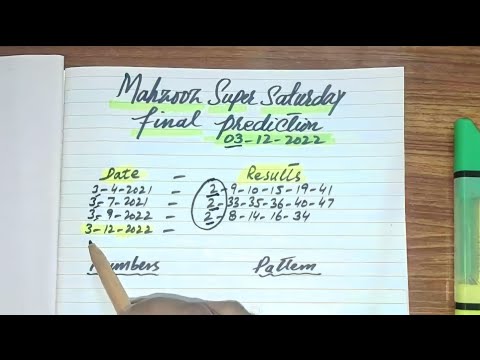 Mahzooz Super Saturday
final prediction
03-12-2022
Date - Results
3-4-2021 = 2-9-10-15-19-41
3-7-2021 = 2-33-35-36-40-47
3-9-2022 = 2-8-14-16-34
3-12-2022 -
Numbers Pattern